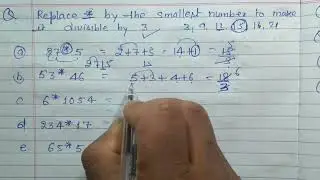 Q Replace * by the smallest number to make
it divisible by 3 3, 9, 12, 15, 18, 21
a 27*5 = 2+7+5 = 14+1 = 15/3
2715
b 53*46 = 5+3+4+6 = 18/3 6
c 6*1054 =
d 234*17 =
e 65*5